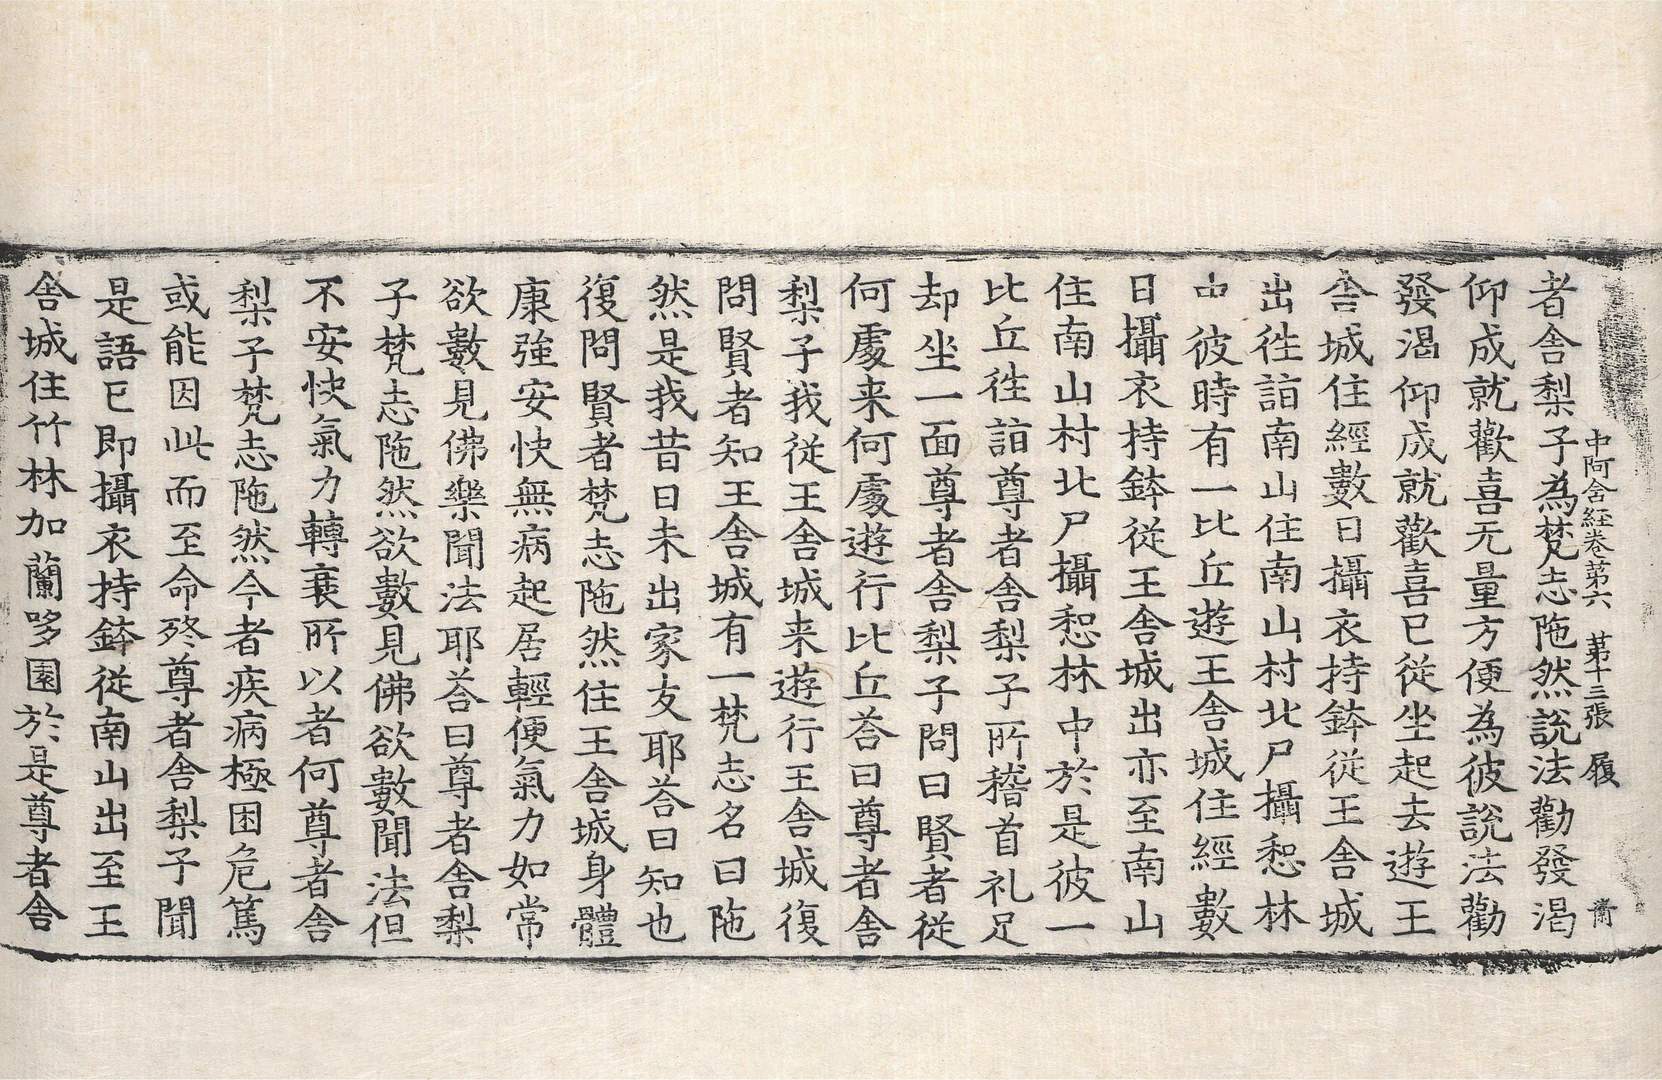 中阿含経卷第六 第十三張 履
者舍梨子為梵志陁然說法勸發渴
仰成就歡喜无量方便為彼說法勸
發渴仰成就歡喜已從坐起去遊王
舍城住經數日攝衣持鉢從王舍城
出往詣南山住南山村北尸攝惒林
中彼時有一比丘遊王舍城住經數
日攝衣持鉢從王舍城出亦至南山
住南山村北尸攝惒林中於是彼一
比丘往詣尊者舍梨子所稽首礼足
却坐一面尊者舍梨子問曰賢者從
何處来何處遊行比丘荅曰尊者舍
梨子我從王舍城来遊行王舍城復
問賢者知王舍城有一梵志名曰陁
然是我昔日未出家友耶荅曰知也
復問賢者梵志陁然住王舍城身體
康強安快無病起居輕便氣力如常
欲數見佛樂聞法耶荅曰尊者舍梨
子梵志陁然欲數見佛欲數聞法但
不安快氣力轉衰所以者何尊者舍
梨子梵志陁然今者疾病極困危篤
或能因此而至命終尊者舍梨子聞
是語已即攝衣持鉢從南山出至王
舍城住竹林加蘭哆園於是尊者舍